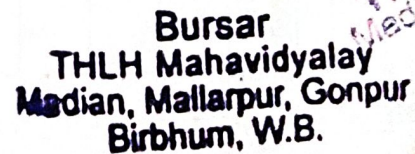 Bursar
THLH Mahavidyalay
Madian, Mallarpur, Gonpur
Birbhum, W.B.